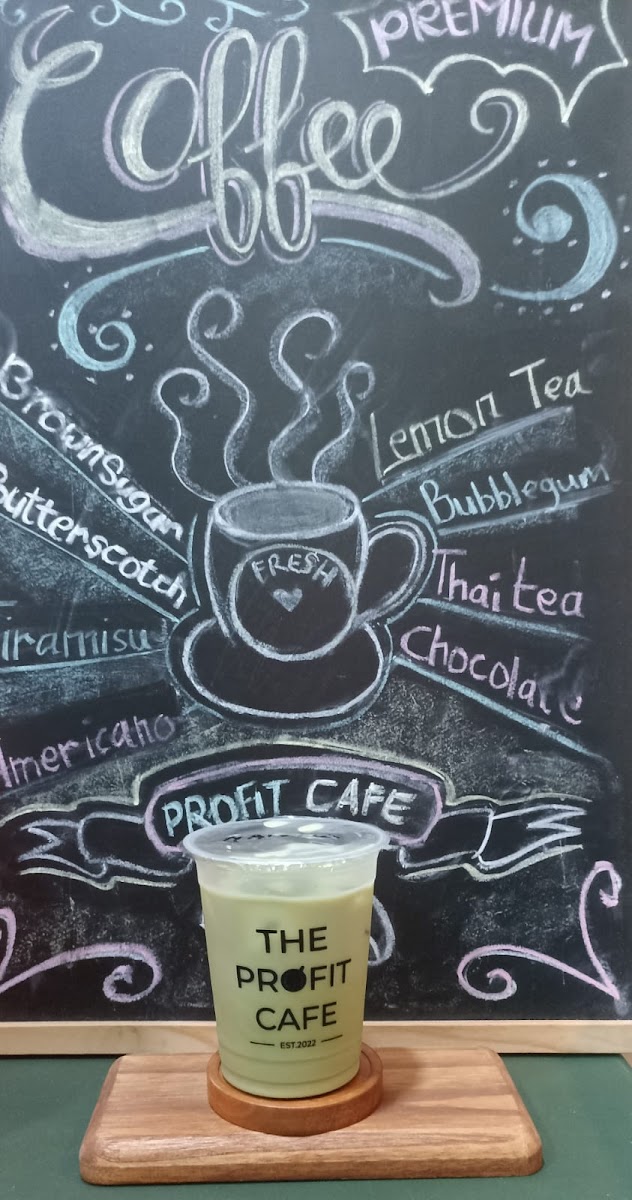 PREMIUM
Coffee
BrownSigar
Butterscotch
iramisu
Americano
Lemon Tea
Bubblegum
Thai tea
Chocolate
FRESH
PROFiT CAFE
THE
PROFIT
CAFE
EST.2022